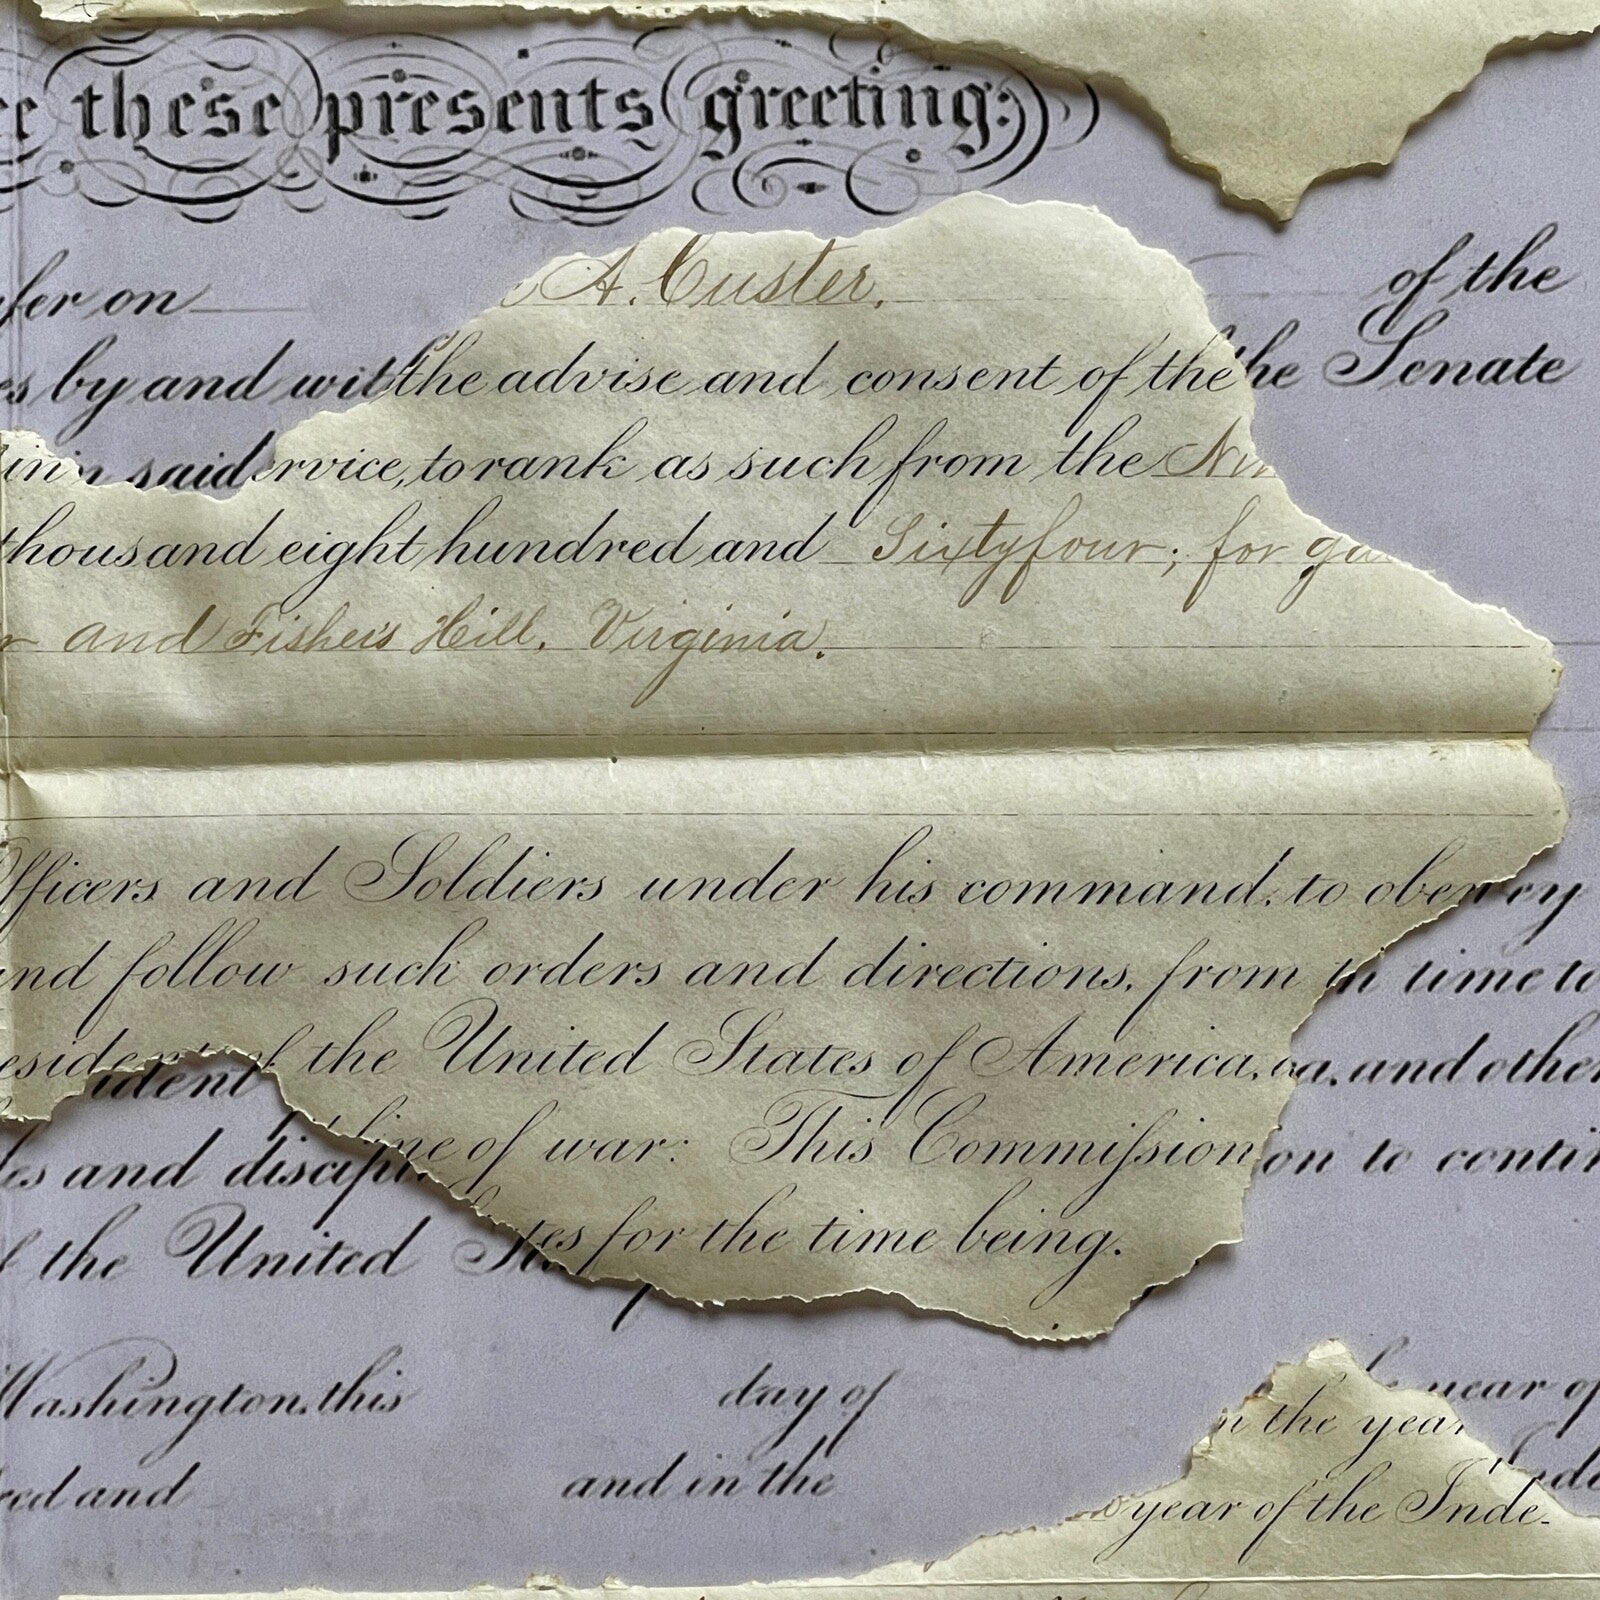 these presents greeting:
fer on A. Custer, of the
es by and with the advise and consent of the the Senate
in said service, to rank as such from the Nin
thousand eight hundred and Sixtyfour; for ga
r and Fisher's Hill, Virginia.
Officers and Soldiers under his command, to obey
and follow such orders and directions, from time to
esident of the United States of America, and other
les and discipline of war: This Commission to contin
f the United States for the time being.
Washington, this day of in the year of
red and and in the year of the Inde-